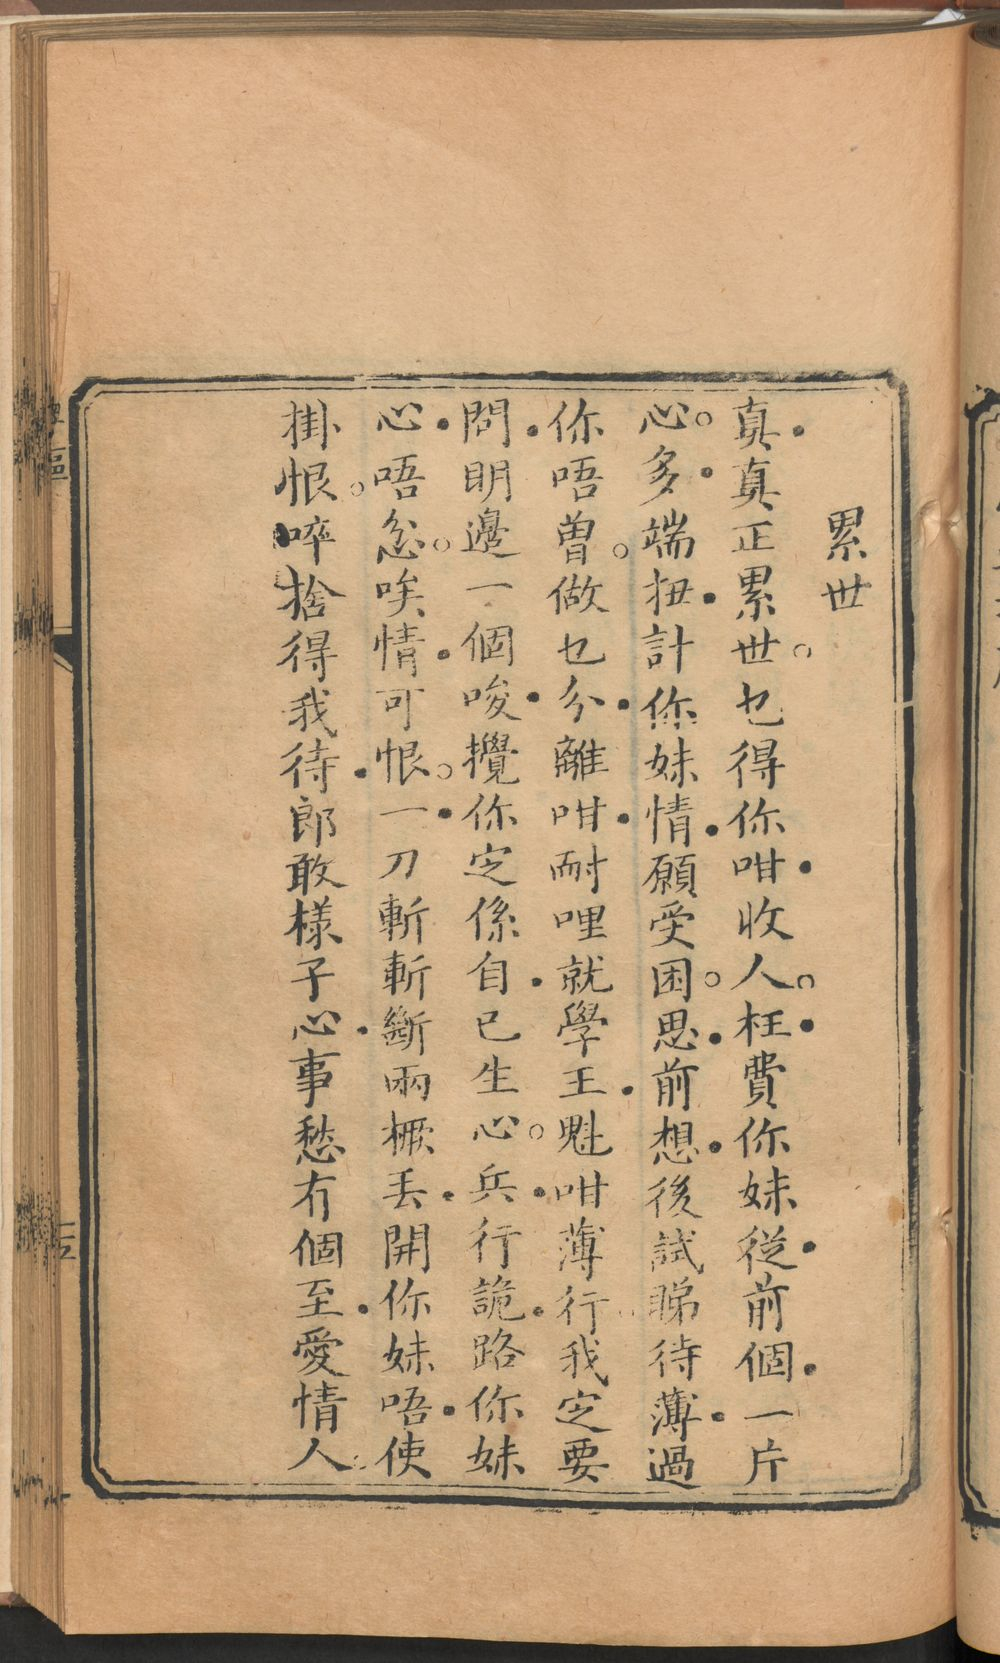 累世
真真正累世乜得你咁收人枉費你妹從前個一片
心多端扭計你妹情願受困思前想後試睇待薄過
你唔曽做乜分離咁耐哩就學王魁咁薄行我定要
問明邊一個唆攪你定係自已生心兵行詭路你妹
心唔忿唉情可恨一刀斬斬斷兩橛丢開你妹唔使
掛恨啐捨得我待郎敢樣子心事愁冇個至愛情人